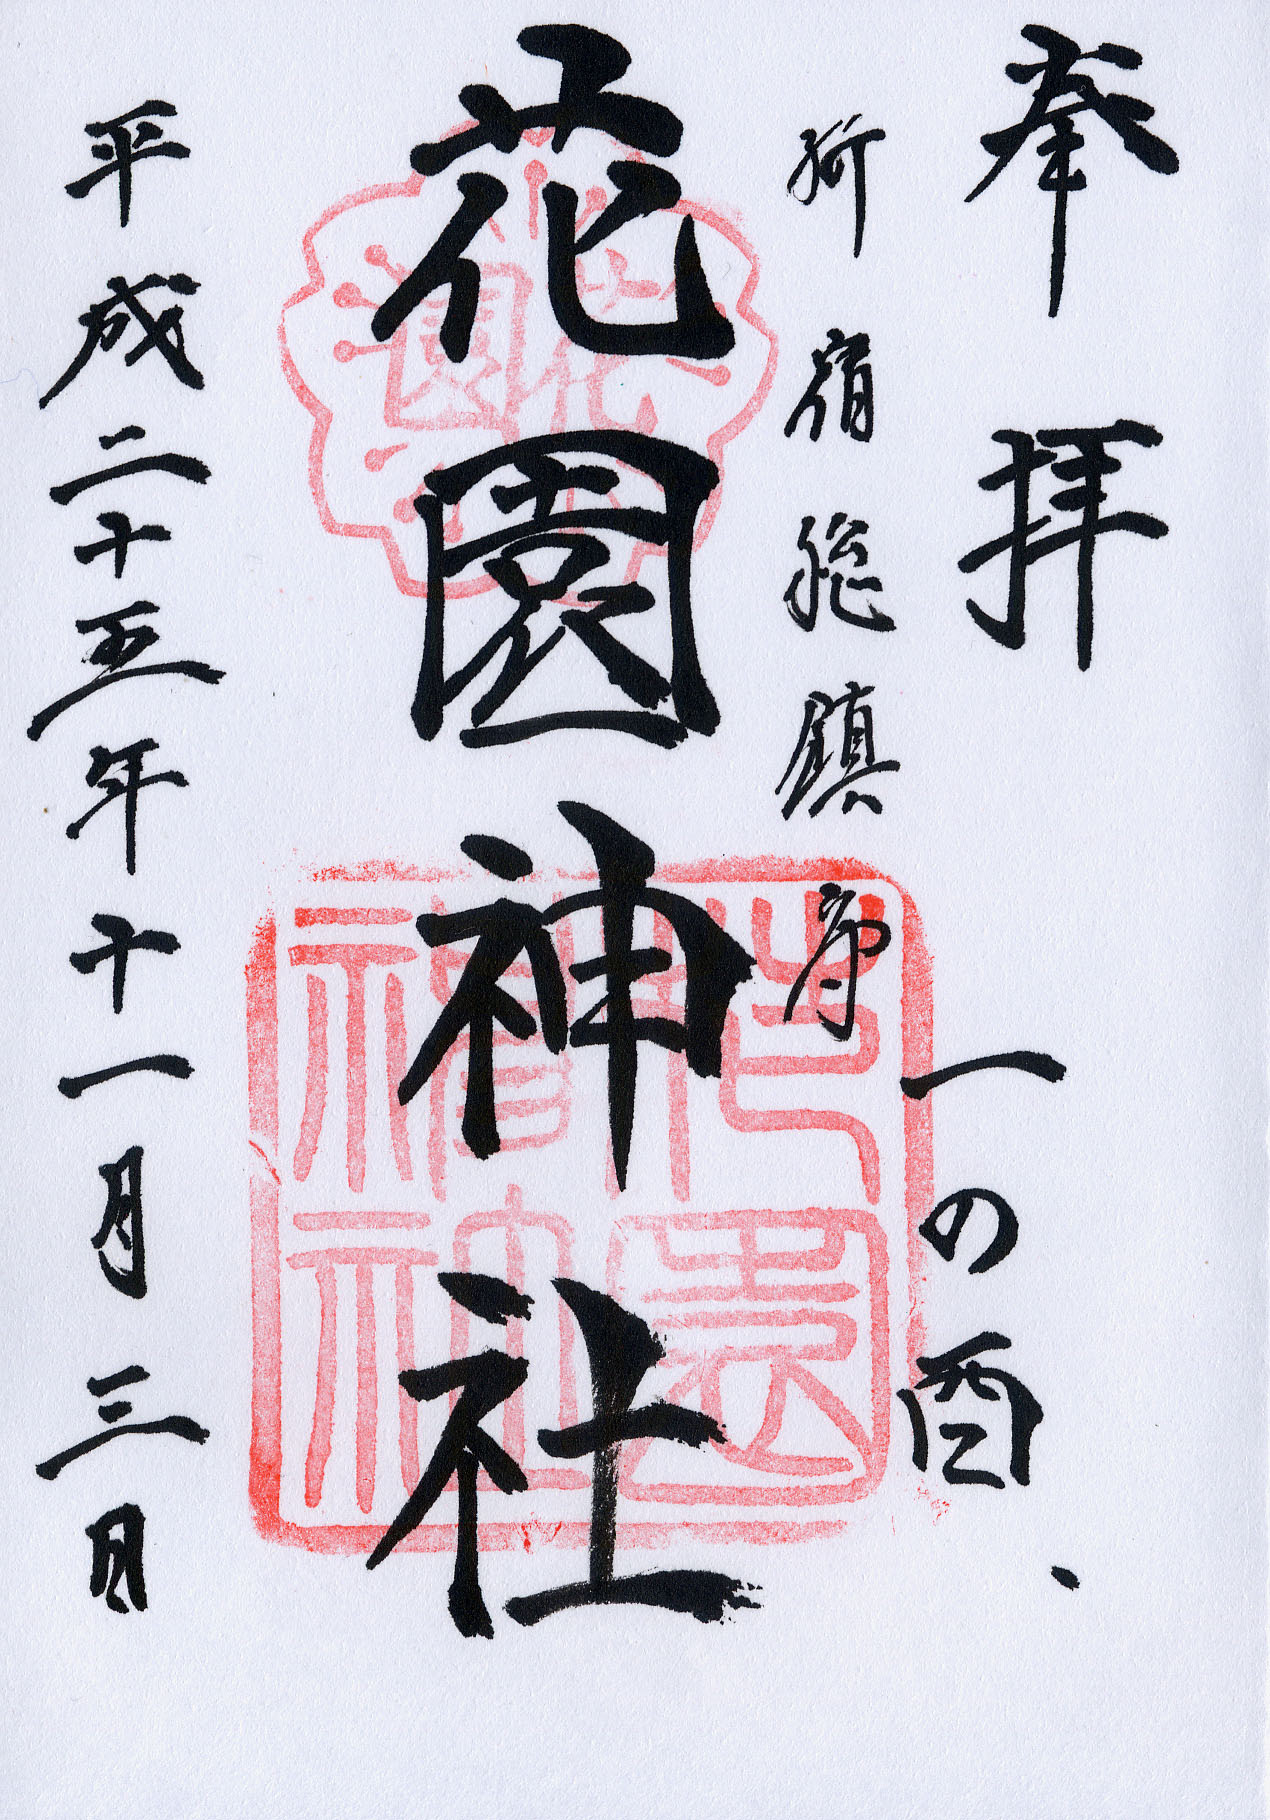 奉拝
一の酉
新宿総鎮守
花園神社
花園
花園稲荷神社
平成二十五年十一月三日